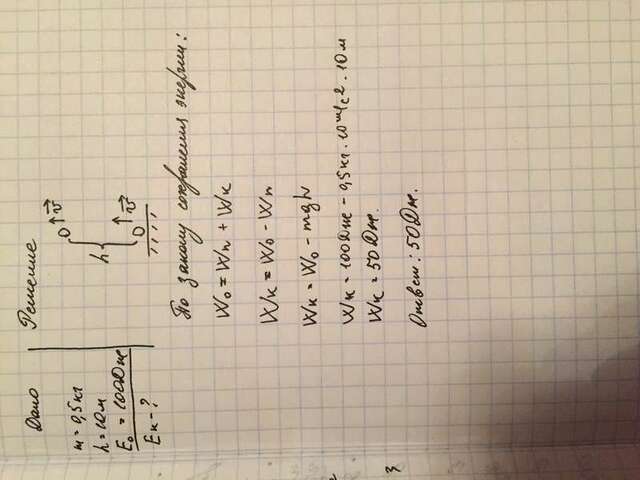 Дано
Решение
m = 0,5 кг
h = 10 м
E₀ = 100 Дж
Eк - ?
v⃗
h
v⃗
По закону сохранения энергии:
W₀ = Wп + Wк
Wк = W₀ - Wп
Wк = W₀ - mgh
Wк = 100 Дж - 0,5 кг · 10 м/с2 · 10 м
Wк = 50 Дж.
Ответ: 50 Дж.
3